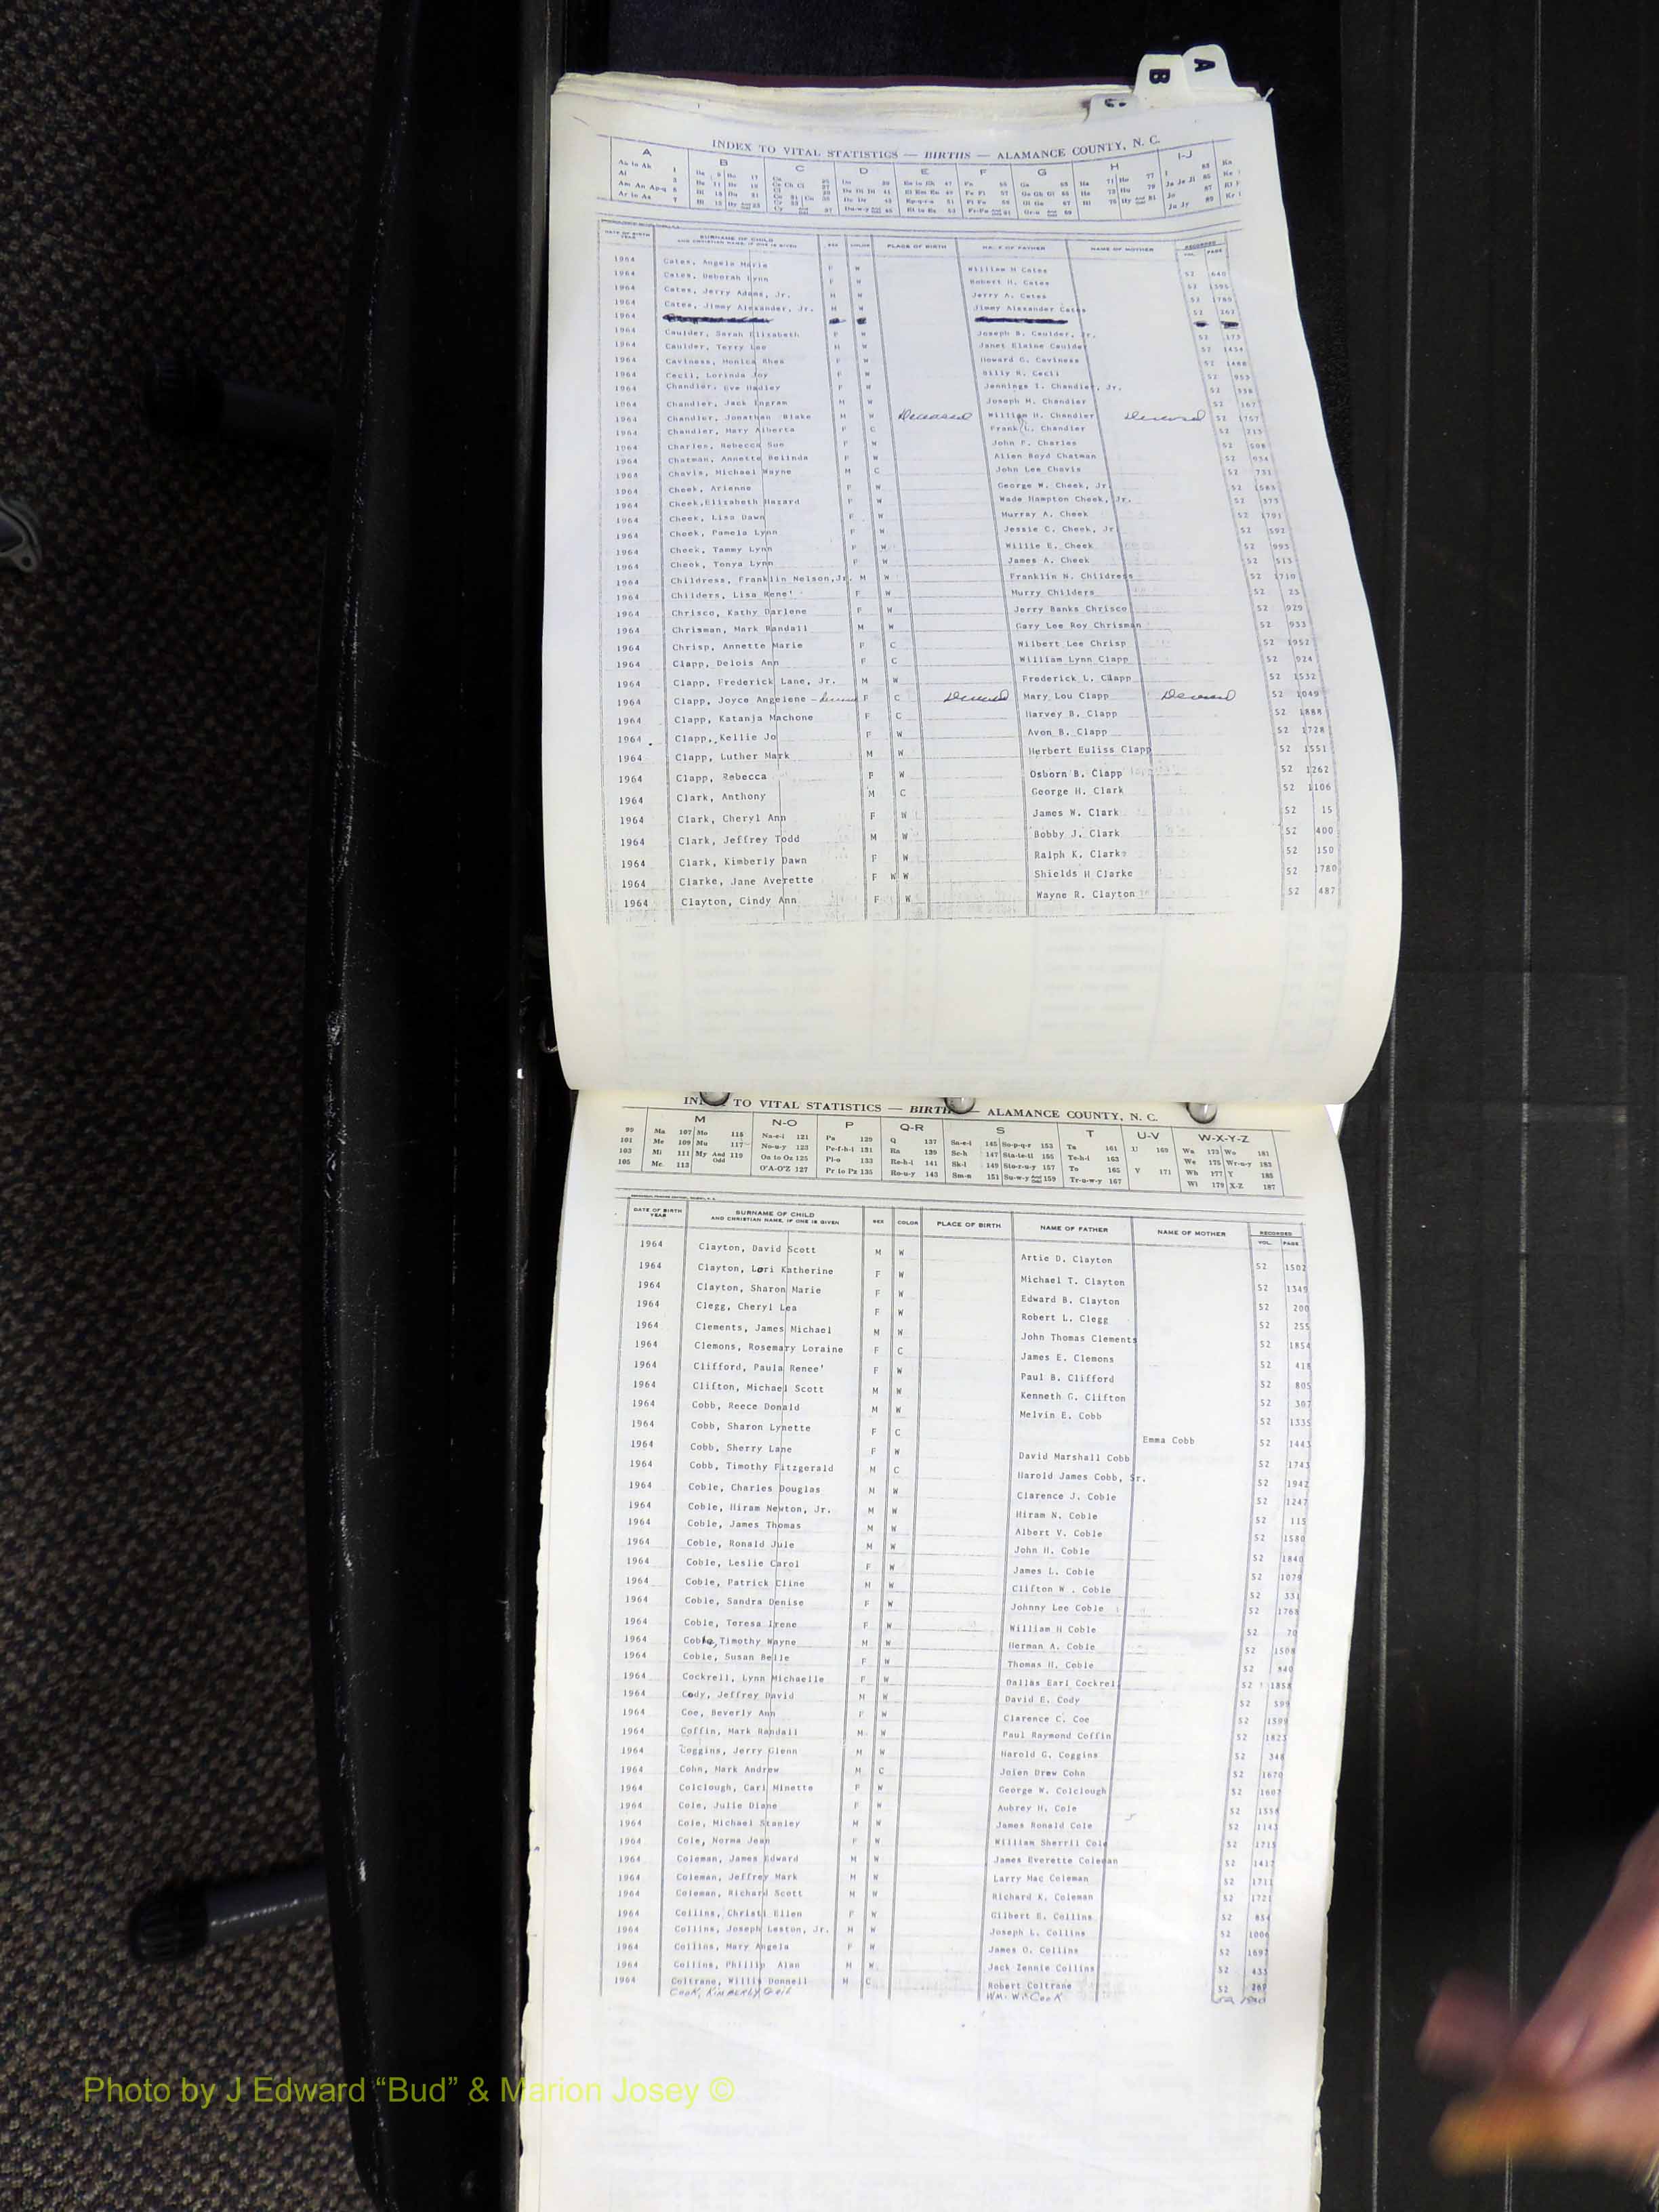 A
B
C
INDEX TO VITAL STATISTICS — BIRTHS — ALAMANCE COUNTY, N. C.
A B C D E F G H I-J
DATE OF BIRTH YEAR SURNAME OF CHILD AND CHRISTIAN NAME, IF ONE IS GIVEN SEX COLOR PLACE OF BIRTH NAME OF MOTHER RECORDED VOL. PAGE
1964 Cates, Angela Marie F W William M Cates 52 640
1964 Cates, Deborah Lynn F W Robert H. Cates 52 1595
1964 Cates, Jerry Adams, Jr. M W Jerry A. Cates 52 1789
1964 Cates, Jimmy Alexander, Jr. M W Jimmy Alexander Cates 52 162
1964
Caulder, Sarah Elizabeth F W Joseph B. Caulder, Jr. 52 173
1964 Caulder, Terry Lee M W Janet Elaine Caulder 52 1454
1964 Caviness, Monica Rhea F W Howard G. Caviness 52 1488
1964 Cecil, Lorinda Joy F W Billy R. Cecil 52 953
1964 Chandler, Eve Hadley F W Jennings I. Chandler, Jr. 52 338
1964 Chandler, Jack Ingram M W Joseph M. Chandler 52 167
1964 Chandler, Jonathan Blake M W Deceased William H. Chandler Deceased 52 1757
1964 Chandler, Mary Alberta F C Frank L. Chandler 52 215
1964 Charles, Rebecca Sue F W John F. Charles 52 508
1964 Chatman, Annette Belinda F W Allen Boyd Chatman 52 934
1964 Chavis, Michael Wayne M C John Lee Chavis 52 731
1964 Cheek, Arienne F W George W. Cheek, Jr. 52 1583
1964 Cheek,Elizabeth Hazard F W Wade Hampton Cheek, Jr. 52 373
1964 Cheek, Lisa Dawn F W Murray A. Cheek 52 1791
1964 Cheek, Pamela Lynn F W Jessie C. Cheek, Jr. 52 592
1964 Cheek, Tammy Lynn F W Willie E. Cheek 52 995
1964 Cheek, Tonya Lynn F W James A. Cheek 52 515
1964 Childress, Franklin Nelson,Jr. M W Franklin N. Childress 52 1710
1964 Childers, Lisa Rene' F W Murry Childers 52 25
1964 Chrisco, Kathy Darlene F W Jerry Banks Chrisco 52 929
1964 Chrisman, Mark Randall M W Gary Lee Roy Chrisman 52 933
1964 Chrisp, Annette Marie F C Wilbert Lee Chrisp 52 1952
1964 Clapp, Delois Ann F C William Lynn Clapp 52 924
1964 Clapp, Frederick Lane, Jr. M W Frederick L. Clapp 52 1532
1964 Clapp, Joyce Angelene - Deceased F C Deceased Mary Lou Clapp Deceased 52 1049
1964 Clapp, Katanja Machone F C Harvey B. Clapp 52 1888
1964 Clapp, Kellie Jo F W Avon B. Clapp 52 1728
1964 Clapp, Luther Mark M W Herbert Euliss Clapp 52 1551
1964 Clapp, Rebecca F W Osborn B. Clapp 52 1262
1964 Clark, Anthony M C George H. Clark 52 1106
1964 Clark, Cheryl Ann F W James W. Clark 52 15
1964 Clark, Jeffrey Todd M W Bobby J. Clark 52 400
1964 Clark, Kimberly Dawn F W Ralph K. Clark 52 150
1964 Clarke, Jane Averette F W W Shields H Clarke 52 1780
1964 Clayton, Cindy Ann F W Wayne R. Clayton 52 487
TO VITAL STATISTICS — BIRTH — ALAMANCE COUNTY, N. C.
M N-O P Q-R S T U-V W-X-Y-Z
99 Ma 107 Mo 115 Na-e-i 121 Pa 129 Q 137 Sa-e-i 145 So-p-q-r 153 Ta 161 U 169 Wa 173 Wo 181
101 Me 109 Mu 117 No-u-y 123 Pe-f-h-i 131 Ra 139 Sc-h 147 Sta-te-ti 155 Te-h-i 163 We 175 Wr-u-y 183
103 Mi 111 My And Odd 119 Oa to Oz 125 Pl-o 133 Re-h-i 141 Sk-l 149 Sto-r-u-y 157 To 165 V 171 Wh 177 Y 185
105 Mc 113 O'A-O'Z 127 Pr to Pz 135 Ro-u-y 143 Sm-n 151 Su-w-y 159 Tr-u-w-y 167 Wi 179 X-Z 187
DATE OF BIRTH YEAR SURNAME OF CHILD AND CHRISTIAN NAME, IF ONE IS GIVEN SEX COLOR PLACE OF BIRTH NAME OF FATHER NAME OF MOTHER RECORDED VOL. PAGE
1964 Clayton, David Scott M W Artie D. Clayton 52 1502
1964 Clayton, Lori Katherine F W Michael T. Clayton 52 1349
1964 Clayton, Sharon Marie F W Edward B. Clayton 52 200
1964 Clegg, Cheryl Lea F W Robert L. Clegg 52 255
1964 Clements, James Michael M W John Thomas Clements 52 1854
1964 Clemons, Rosemary Loraine F C James E. Clemons 52 418
1964 Clifford, Paula Renee' F W Paul B. Clifford 52 805
1964 Clifton, Michael Scott M W Kenneth G. Clifton 52 307
1964 Cobb, Reece Donald M W Melvin E. Cobb 52 1335
1964 Cobb, Sharon Lynette F C Emma Cobb 52 1443
1964 Cobb, Sherry Lane F W David Marshall Cobb 52 1743
1964 Cobb, Timothy Fitzgerald M C Harold James Cobb, Sr. 52 1942
1964 Coble, Charles Douglas M W Clarence J. Coble 52 1247
1964 Coble, Hiram Newton, Jr. M W Hiram N. Coble 52 115
1964 Coble, James Thomas M W Albert V. Coble 52 1580
1964 Coble, Ronald Jule M W John H. Coble 52 1840
1964 Coble, Leslie Carol F W James L. Coble 52 1079
1964 Coble, Patrick Cline M W Clifton W . Coble 52 331
1964 Coble, Sandra Denise F W Johnny Lee Coble 52 1768
1964 Coble, Teresa Irene F W William H Coble 52 70
1964 Coble, Timothy Wayne M W Herman A. Coble 52 1508
1964 Coble, Susan Belle F W Thomas H. Coble 52 840
1964 Cockrell, Lynn Michaelle F W Dallas Earl Cockrell 52 1858
1964 Cody, Jeffrey David M W David E. Cody 52 599
1964 Coe, Beverly Ann F W Clarence C. Coe 52 1599
1964 Coffin, Mark Randall M W Paul Raymond Coffin 52 1823
1964 Coggins, Jerry Glenn M W Harold G. Coggins 52 348
1964 Cohn, Mark Andrew M C Jolen Drew Cohn 52 1670
1964 Colclough, Carl Minette F W George W. Colclough 52 1607
1964 Cole, Julie Diane F W Aubrey H. Cole 52 1558
1964 Cole, Michael Stanley M W James Ronald Cole 52 1143
1964 Cole, Norma Jean F W William Sherril Cole 52 1715
1964 Coleman, James Edward M W James Everette Coleman 52 1417
1964 Coleman, Jeffrey Mark M W Larry Mac Coleman 52 1711
1964 Coleman, Richard Scott M W Richard K. Coleman 52 1721
1964 Collins, Christi Ellen F W Gilbert E. Collins 52 854
1964 Collins, Joseph Leston, Jr. M W Joseph L. Collins 52 1006
1964 Collins, Mary Angela F W James O. Collins 52 1697
1964 Collins, Phillip Alan M W Jack Zennie Collins 52 433
1964 Coltrane, Willis Donnell M C Robert Coltrane 52 269
Cook, Kimberly Gail Wm. W. Cook 52 1930
Photo by J Edward “Bud” & Marion Josey ©